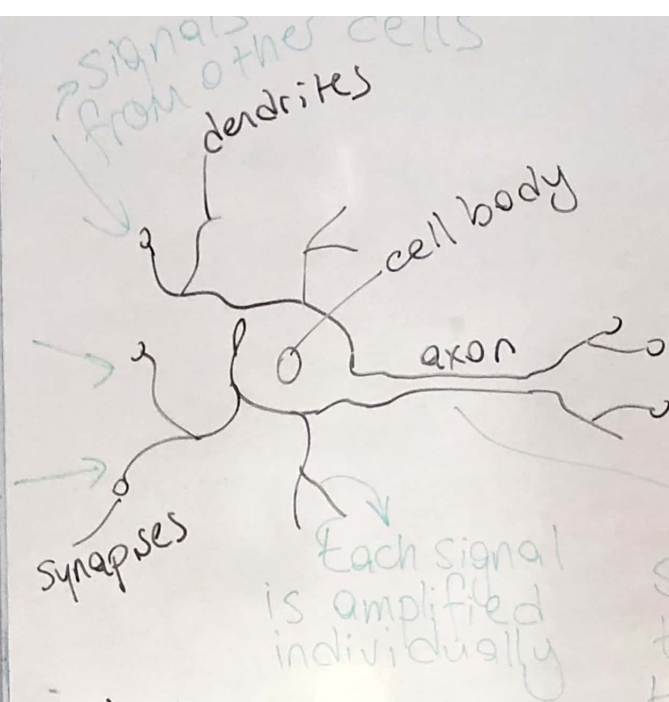 signals
from other cells
dendrites
cell body
axon
synapses
Each signal
is amplified
individually